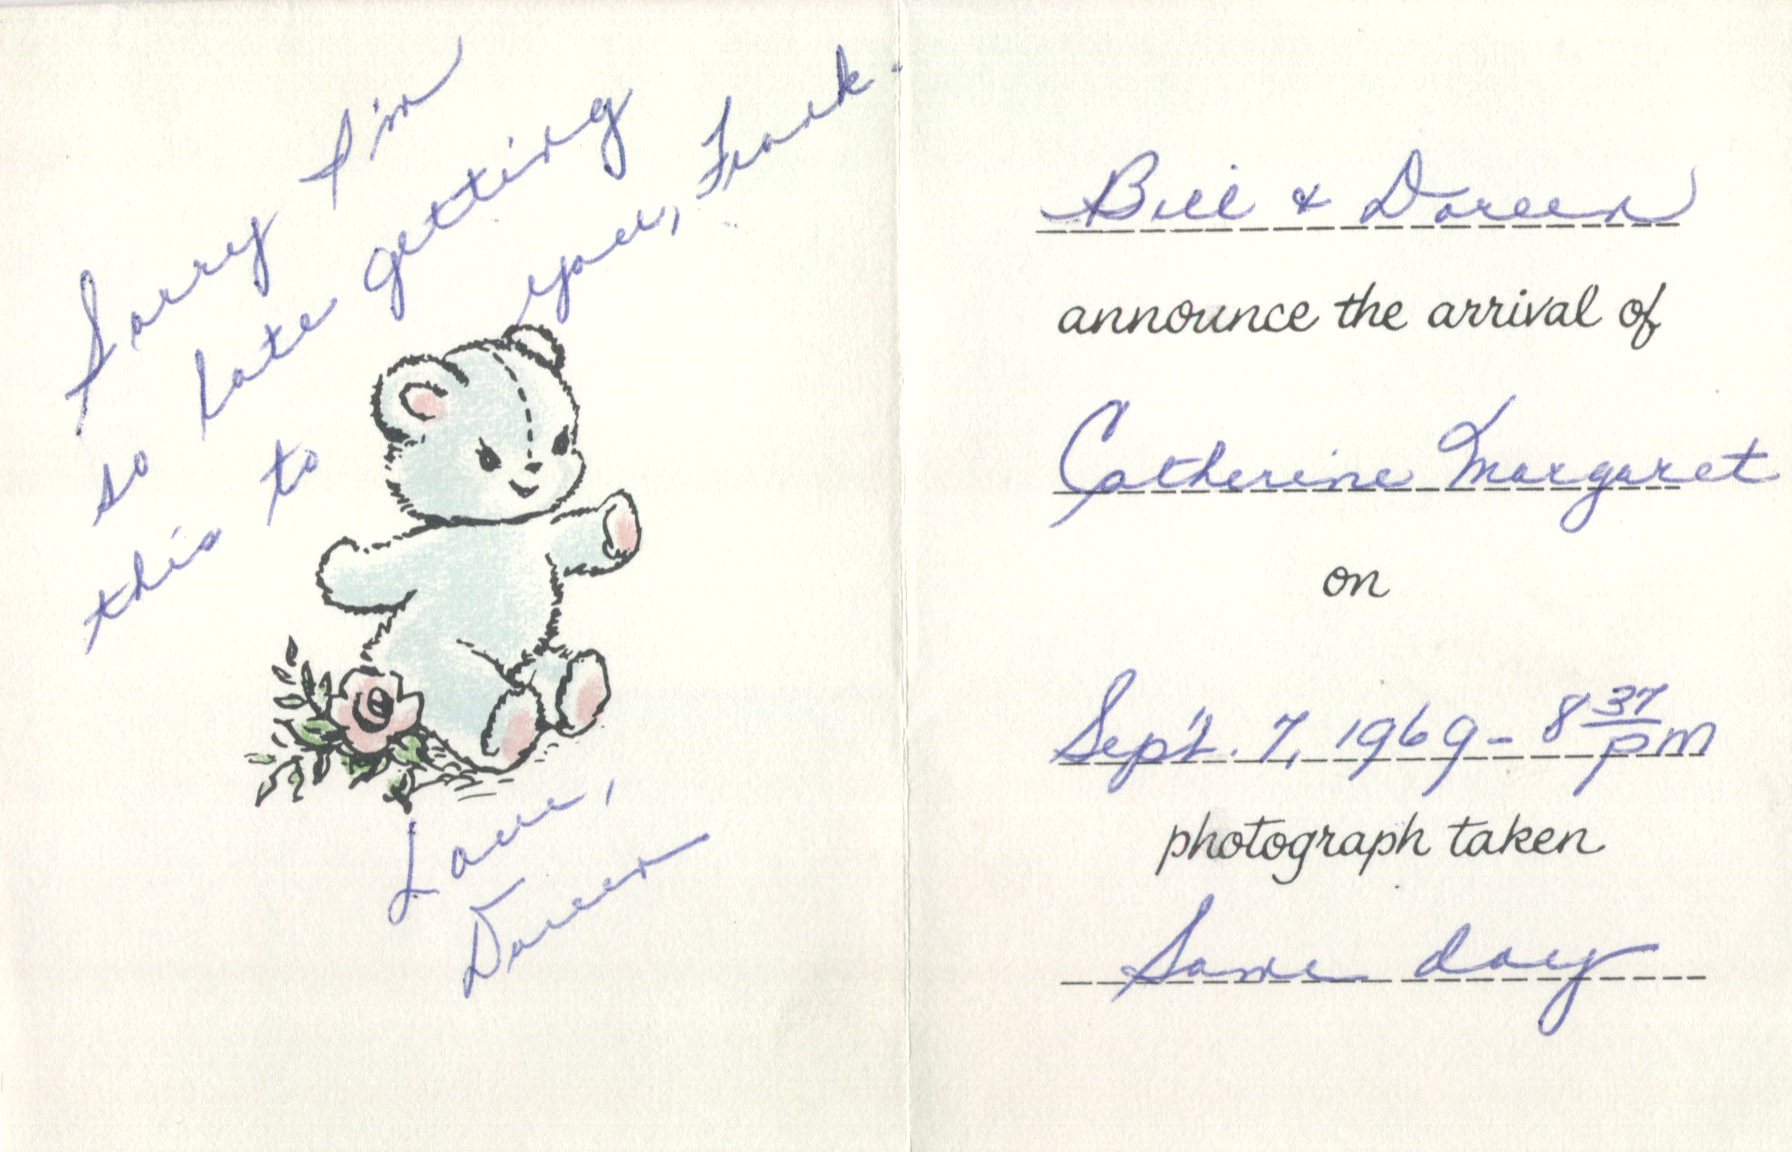 Sorry I'm
so late getting
this to you, Frank.
Love,
Doreen
Bill & Doreen
announce the arrival of
Catherine Margaret
on
Sep't. 7, 1969 - 8 37 pm
photograph taken
Same day